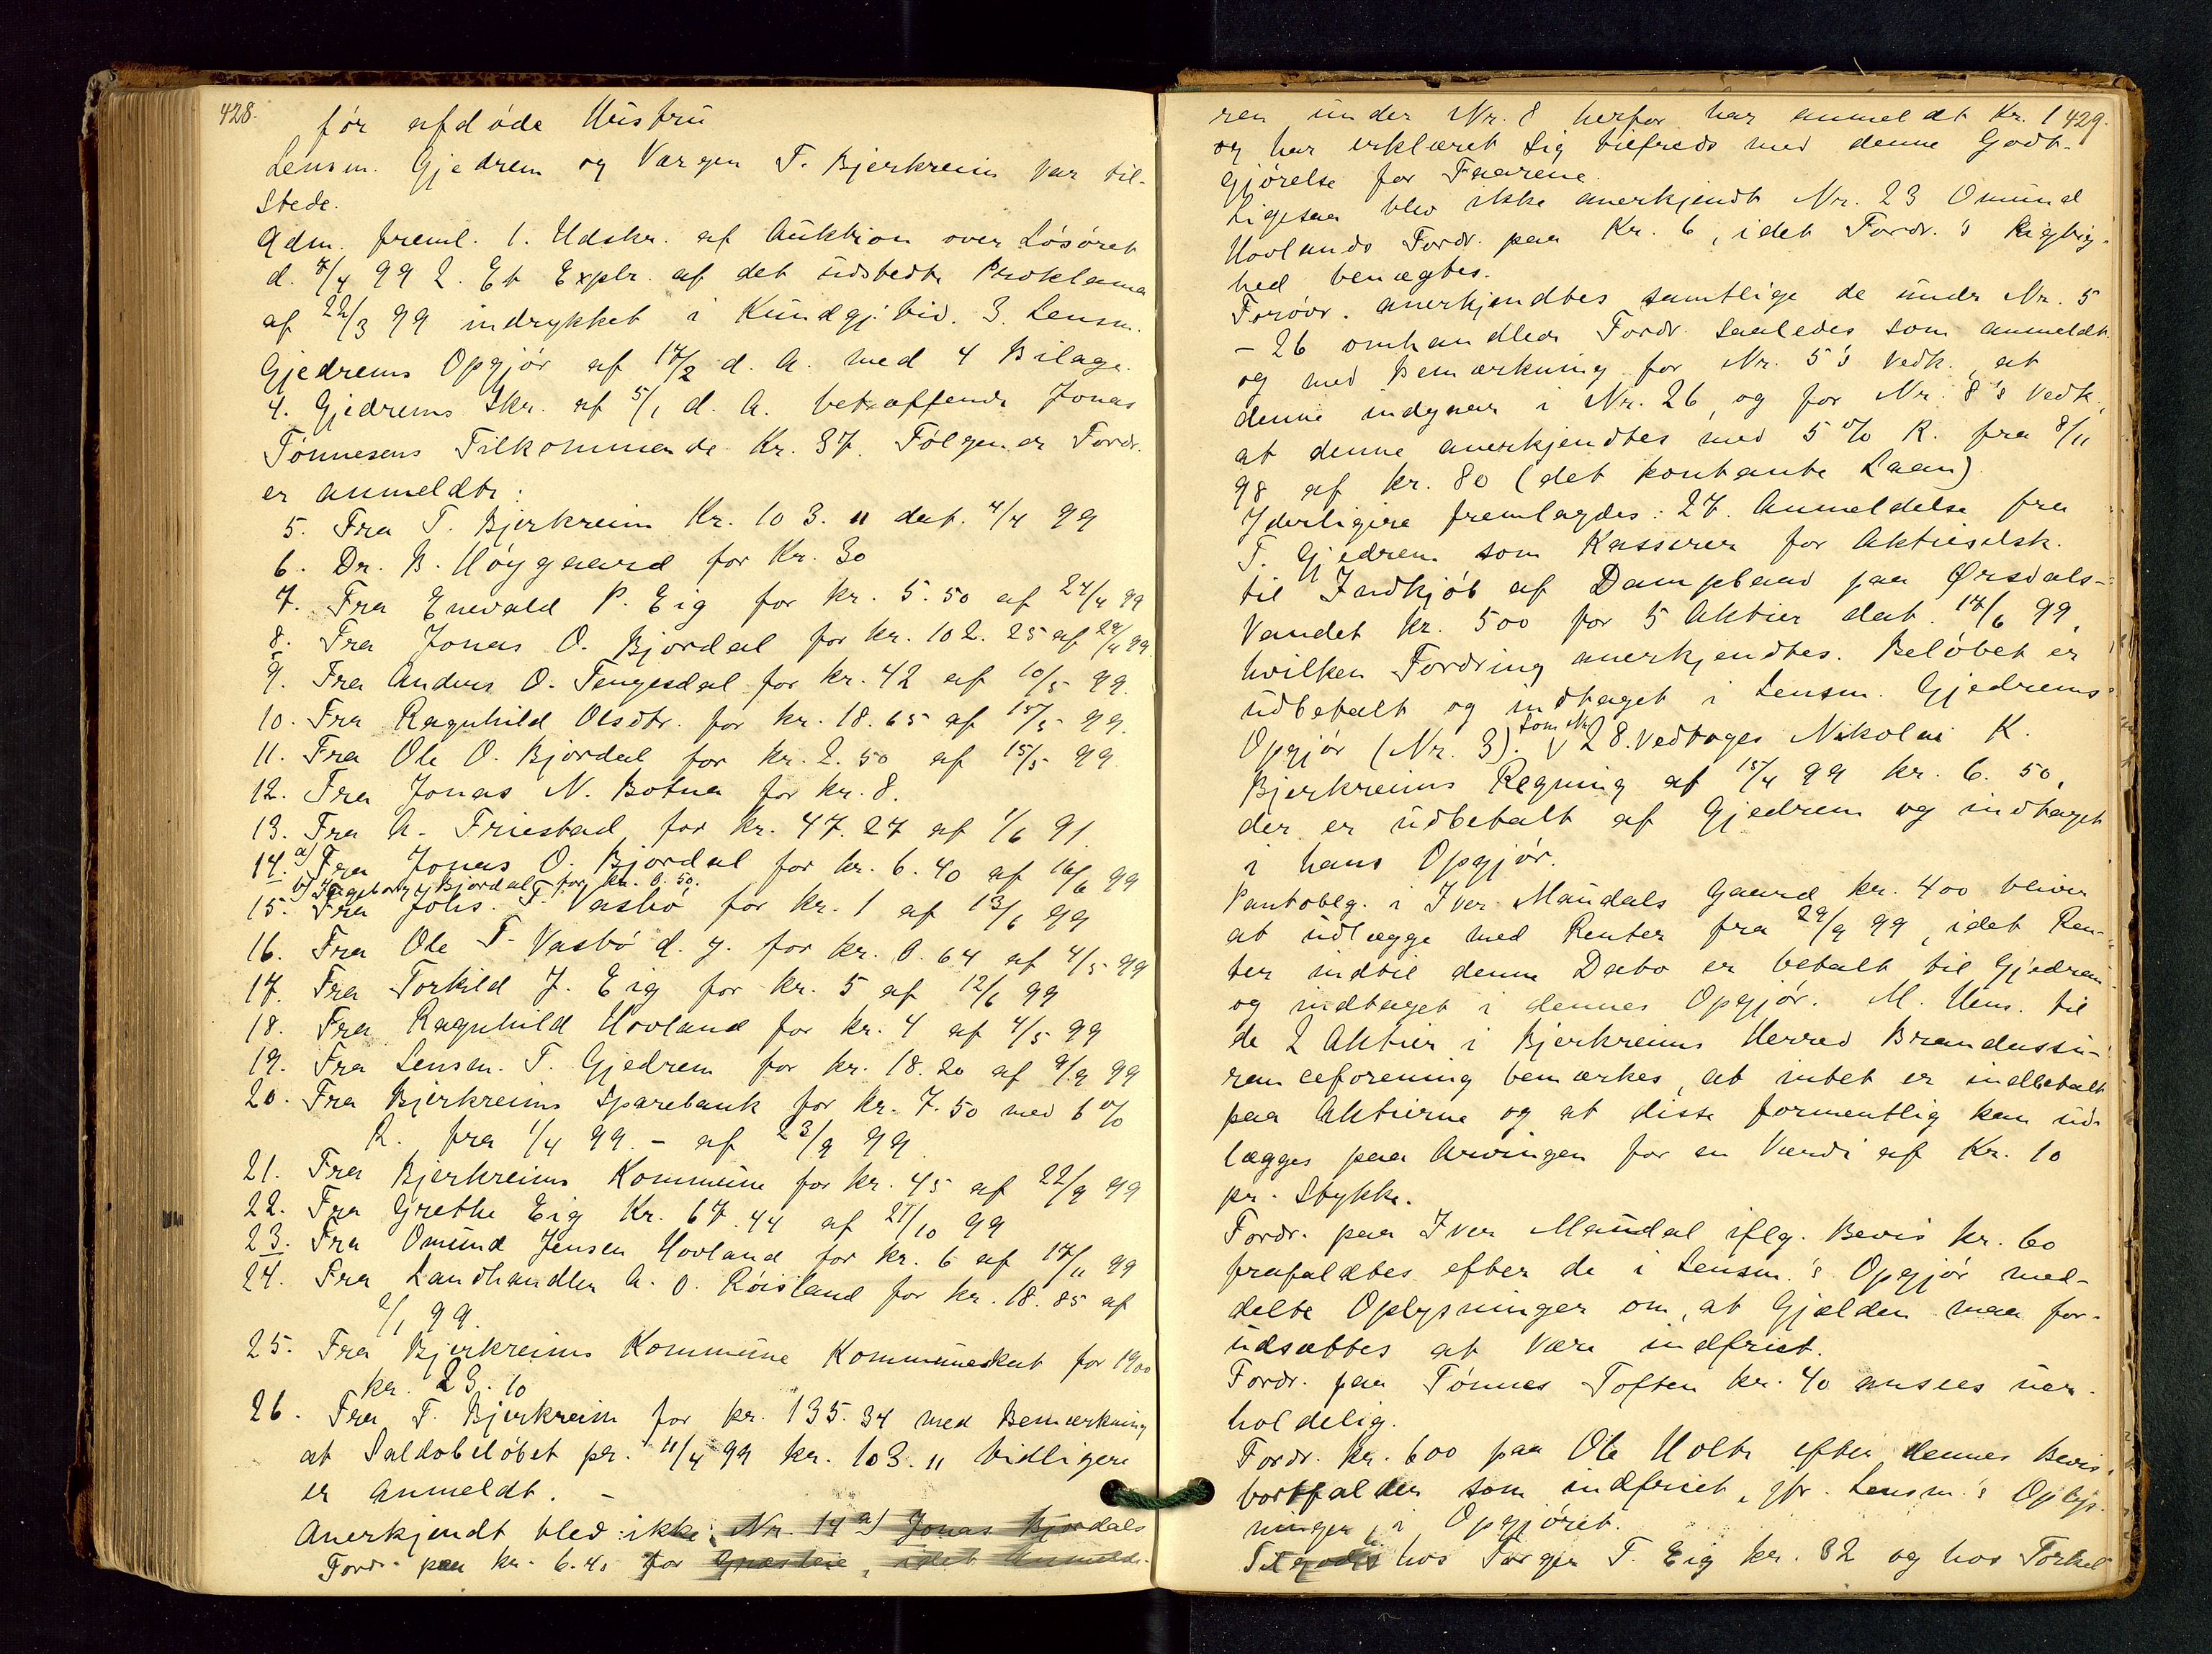 428.
før afdøde Hustru
Lensm. Gjedrem og Værgen T. Bjerkreim var til-
stede.
Adm. freml. 1. Udskr. af Auktion over Løsøret
d. 8/4 99 2. Et Explr. af det udstedte Proklama
af 22/3 99 indrykket i Kundgj.tid. 3. Lensm.
Gjedrems Opgjør af 17/2 d. A. med 4 Bilage.
4. Gjedrems Skr. af 5/1 d. A. betræffende Jonas
Tønnesens Tilkommende Kr. 37. Følgende Fordr.
er anmeldte:
5. Fra T. Bjerkreim Kr. 103.11 dat. 4/4 99
6. Dr. B. Høygaard for Kr. 30
7. Fra Enevald P. Eig for kr. 5.50 af 24/4 99
8. Fra Jonas O. Bjordal for kr. 102.25 af 29/4 99
9. Fra Anders O. Tengesdal for kr. 42 af 10/5 99.
10. Fra Ragnhild Olsdtr. for kr. 18.65 af 15/5 99.
11. Fra Ole O. Bjordal for kr. 2.50 af 15/5 99
12. Fra Jonas N. Botne for kr. 8.
13. Fra A. Friestad for kr. 47.27 af 1/6 91.
14. a) Fra Jonas O. Bjordal for kr. 6.40 af 16/6 99
b) Ingeborg Bjordal for kr. 0.50.
15. Fra Johs. T. Vasbø for kr. 1 af 13/6 99
16. Fra Ole T. Vasbø d. y. for kr. 0.64 af 4/5 99
17. Fra Torkild J. Eig for kr. 5 af 12/6 99
18. Fra Ragnhild Hovland for kr. 4 af 4/5 99
19. Fra Lensm. T. Gjedrem for kr. 18.20 af 9/9 99
20. Fra Bjerkreims Sparebank for kr. 7.50 med 6 %
R. fra 1/4 99. - af 23/9 99
21. Fra Bjerkreims Kommune for kr. 45 af 22/9 99
22. Fra Grethe Eig Kr. 67.44 af 27/10 99
23. Fra Omund Jensen Hovland for kr. 6 af 17/11 99
24. Fra Landhandler A. O. Røisland for kr. 18.85 af
2/1 99.
25. Fra Bjerkreims Kommune Kommuneskat for 1900
kr. 23.10
26. Fra T. Bjerkreim for kr. 135.34 med Bemærkning
at Saldobeløbet pr. 11/4 99 kr. 103.11 tidligere
er anmeldt. -
Anerkjendt blev ikke Nr. 14 a) Jonas Bjordals
Fordr. paa kr. 6.40 for Græsleie, idet Anmelde-
429.
ren under Nr. 8 herfor har anmeldt Kr. 1
og har erklæret sig tilfreds med denne Godt-
gjørelse for Faarene.
Ligesaa blev ikke anerkjendt Nr. 23 Omund
Hovlands Fordr. paa Kr. 6, idet Fordr.'s Rigtig-
hed benægtes.
Forøvr. anerkjendtes samtlige de under Nr. 5
- 26 omhandlede Fordr. saaledes som anmeldt
og med Bemærkning for Nr. 5's Vedk., at
denne indgaar i Nr. 26, og for Nr. 8's Vedk.,
at denne anerkjendtes med 5 % R. fra 8/11
98 af kr. 80 (det kontante Laan).
Yderligere fremlagdes: 27. Anmeldelse fra
T. Gjedrem som Kasserer for Aktieselsk.
til Indkjøb af Dampbaad paa Ørsdals-
vandet kr. 500 for 5 Aktier dat. 17/6 99,
hvilken Fordring anerkjendtes. Beløbet er
udbetalt og indtaget i Lensm. Gjedrems
Opgjør (Nr. 3). Som Nr. 28. vedtoges Nikolai K.
Bjerkreims Regning af 15/4 99 kr. 6.50,
der er udbetalt af Gjedrem og indtaget
i hans Opgjør.
Pantoblg. i Iver Maudals Gaard kr. 400 bliver
at udlægge med Renter fra 29/9 99, idet Ren-
ter indtil denne Dato er betalt til Gjedrem
og indtaget i dennes Opgjør. M. Hens. til
de 2 Aktier i Bjerkreims Herred Brandassu-
ranceforening bemærkes, at intet er indbetalt
paa Aktierne og at disse formentlig kan ud-
lægges paa Arvingen for en Værdi af Kr. 10
pr. Stykke.
Fordr. paa Iver Maudal iflg. Bevis kr. 60
frafaldtes efter de i Lensm.'s Opgjør med-
delte Oplysninger om, at Gjælden maa for-
udsættes at være indfriet.
Fordr. paa Tønnes Toften kr. 40 ansees uer-
holdelig.
Fordr. kr. 600 paa Ole Holte efter dennes Bevis,
bortfalder som indfriet, jfr. Lensm.'s Oplys-
ninger i Opgjøret.
Tilgode hos Torger T. Eig kr. 32 og hos Torkel